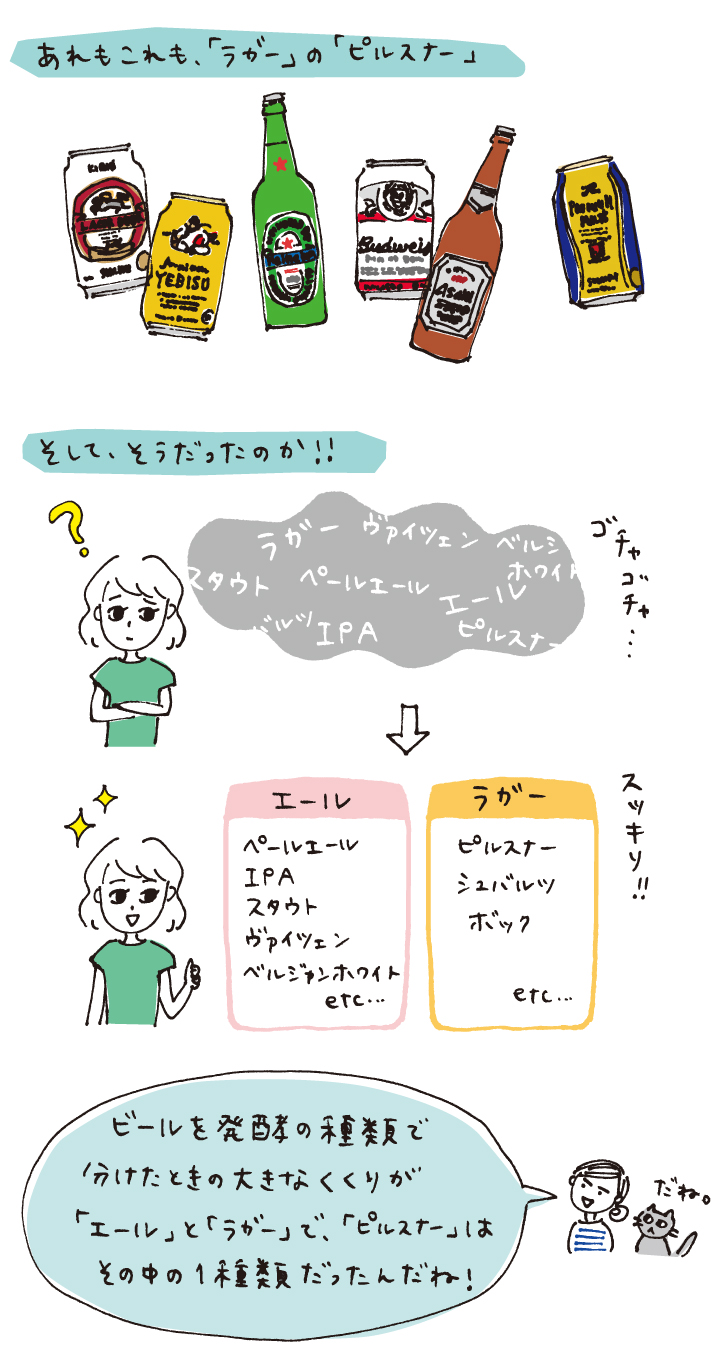 あれもこれも、「ラガー」の「ピルスナー」
KIRIN
LAGER BEER
YEBISU
Budweis
Asahi
そして、そうだったのか!!
?
ラガー ヴァイツェン ベルジ
ホワイト
スタウト ペールエール エール
バルツ IPA ピルスナー
ゴチャ
ゴチャ…
エール
ペールエール
IPA
スタウト
ヴァイツェン
ベルジャンホワイト
etc…
ラガー
ピルスナー
シュバルツ
ボック
etc…
スッキリ!!
ビールを発酵の種類で
分けたときの大きなくくりが
「エール」と「ラガー」で、「ピルスナー」は
その中の1種類だったんだね!
だね。